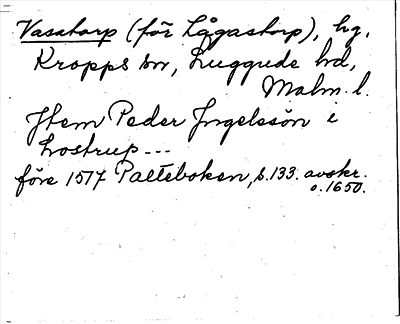 Vasatorp (för Lågastorp), hg,
Kropps sn, Luggude hd,
Malm. l.
Jtem Peder Jngelssön i
Lostrup ---
före 1517 Palteboken, s. 133. avskr.
o. 1650.